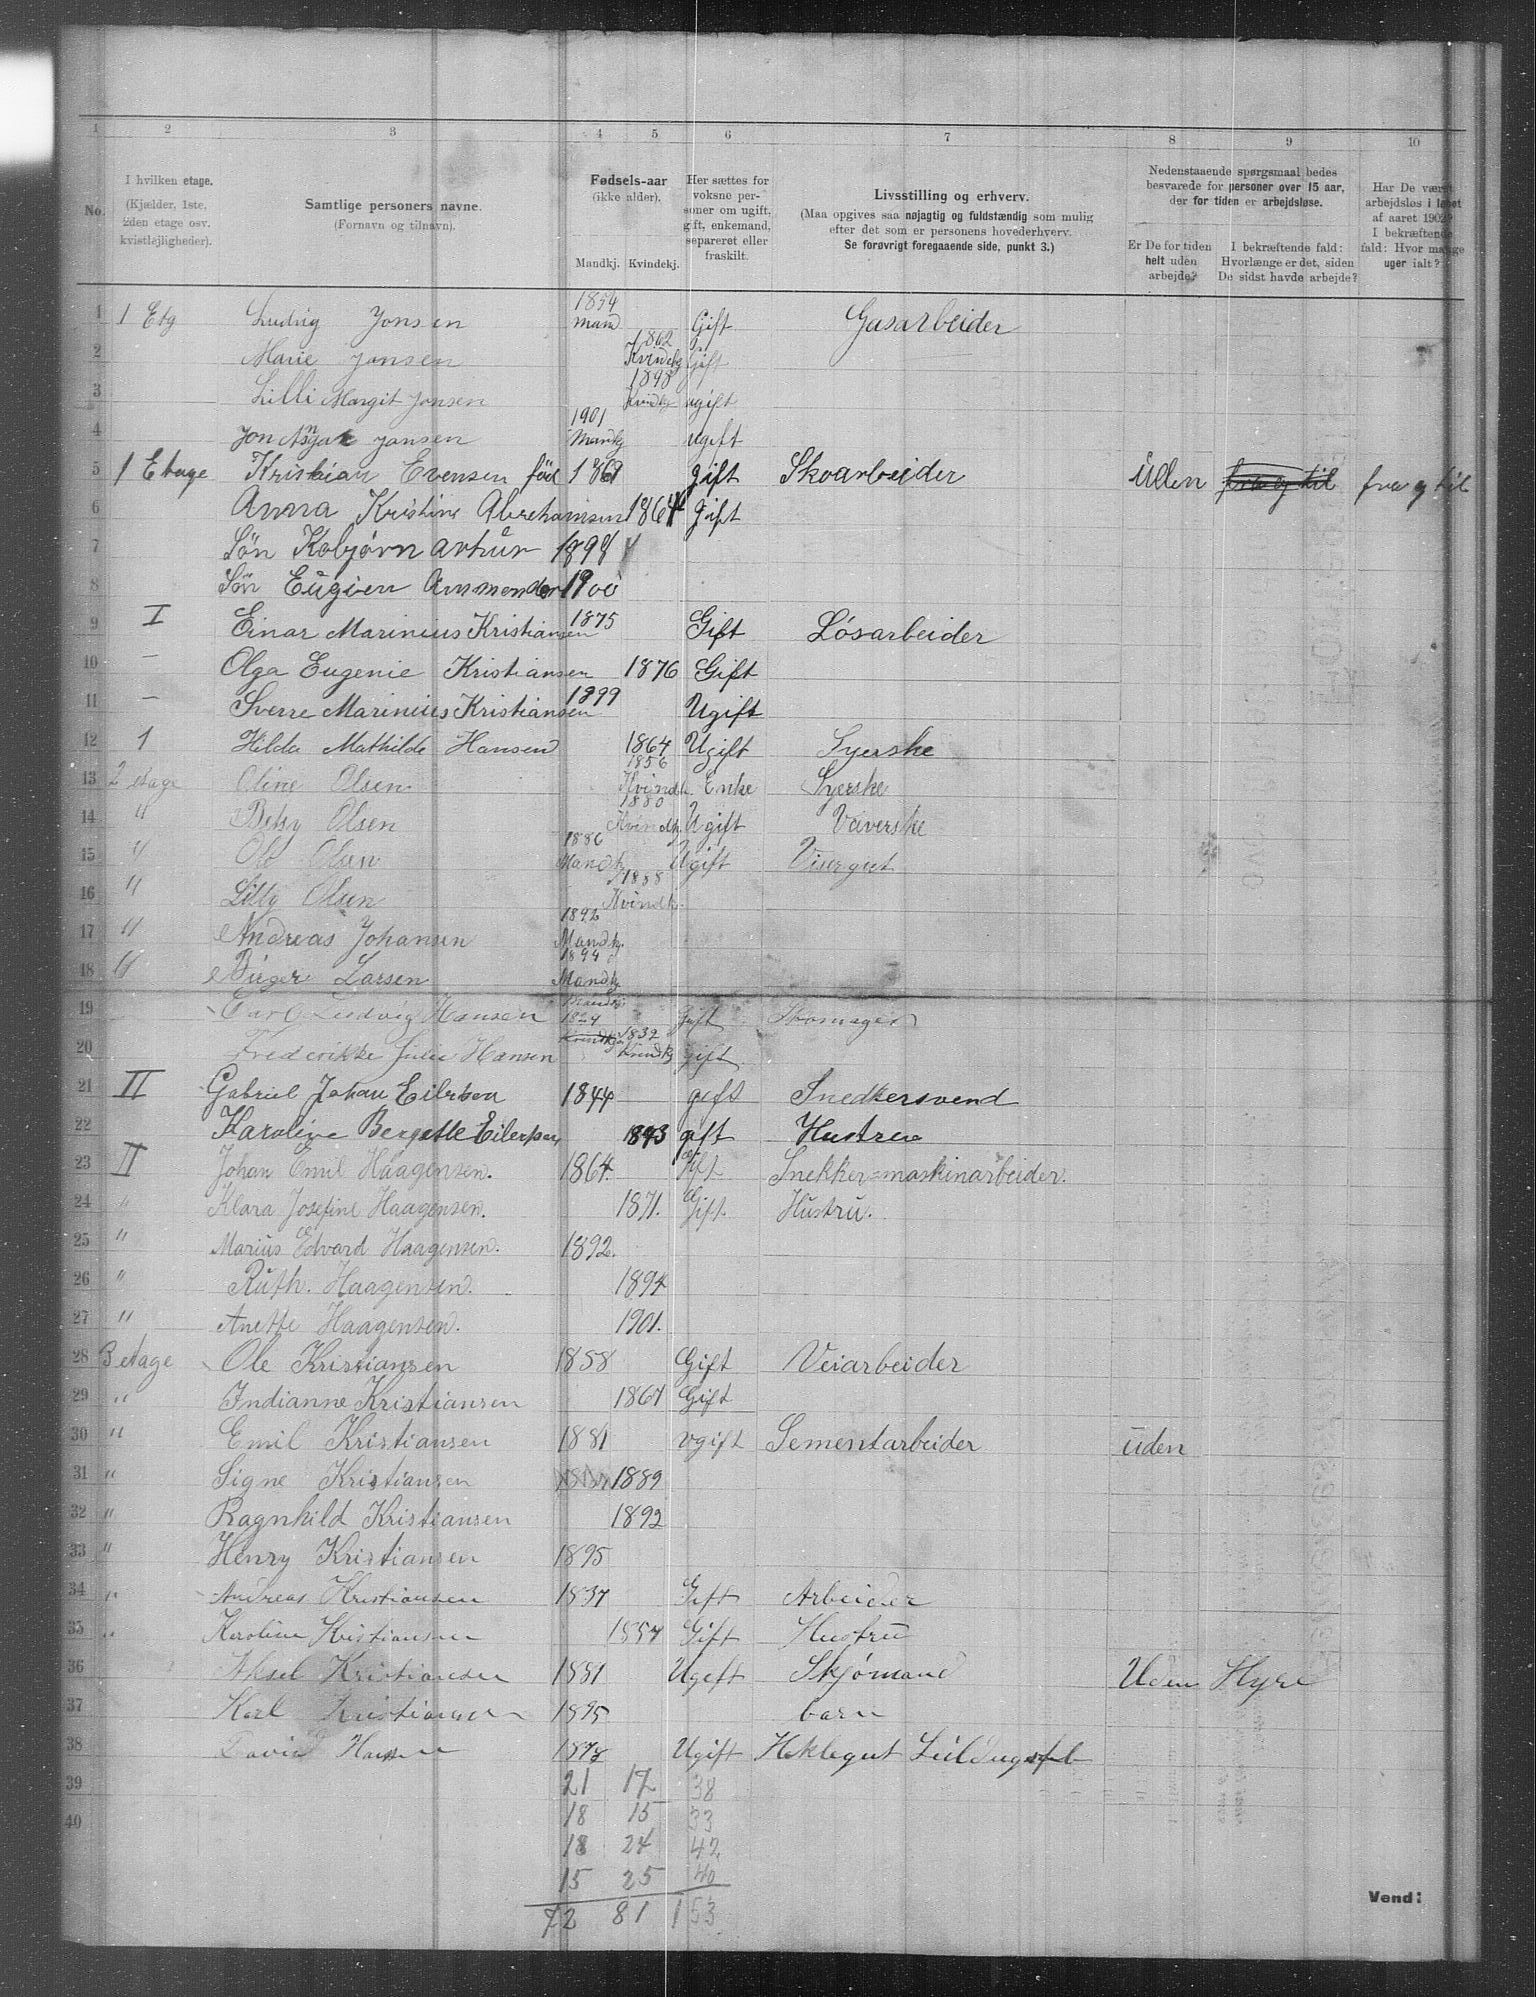 1 2 3 4 5 6 7 8 9 10
No.
I hvilken etage.
(Kjælder, 1ste,
2den etage osv.
kvistlejligheder).
Samtlige personers navne.
(Fornavn og tilnavn).
Fødsels-aar
(ikke alder).
Mandkj. Kvindekj.
Her sættes for
voksne per-
soner om ugift,
gift, enkemand,
separeret eller
fraskilt.
Livsstilling og erhverv.
(Maa opgives saa nøjagtig og fuldstændig som mulig
efter det som er personens hovederhverv.
Se forøvrigt foregaaende side, punkt 3.)
Nedenstaaende spørgsmaal bedes
besvarede for personer over 15 aar,
der for tiden er arbejdsløse.
Er De for tiden
helt uden
arbejde?
I bekræftende fald:
Hvorlænge er det, siden
De sidst havde arbejde?
Har De været
arbejdsløs i løbet
af aaret 1902?
I bekræftende
fald: Hvor mange
uger ialt?
1 1 Etg Ludvig Jonsen 1854 mand Gift Gasarbeider
2 Marie Jonsen 1862 Gift
3 Lilli Margit Jonsen 1898 ugift
4 Jon Jonsen 1901 Mandkj ugift
5 1 Etage Kristian Evensen fød gift Skoarbeider uden fra og til fra og til
6 Anna Kristine Abrehamsen 1864 Gift
7 Søn Kobjørn Artur
8 Søn Eugien 1900
9 I Einar Marinius Kristiansen 1875 Gift Løsarbeider
10 - Olga Eugenie Kristiansen 1876 Gift
11 - Sverre Marinius Kristiansen 1899 Ugift
12 1 Hilda Mathilde Hansen 1864 Ugift Syerske
13 2 etage Oline Olsen 1856 Kvindk. Enke Syerske
14 " Betsy Olsen 1880 Kvindkj Ugift Væverske
15 " Ole Olsen 1886 Mandk Ugift Visergut
16 " Lilly Olsen 1888 Kvindk.
17 " Andreas Johansen 1892 Mandk.
18 " Birger Larsen 1894 Mandkj
19 Carl Ludvig Hansen Mandkj 1824 Gift Skomager
20 Frederikke Julie Hansen 1832 Kvindkj gift
21 II Gabriel Johan Eilertsen 1844 gift Snedkersvend
22 Karoline Bergette Eilertsen 1843 gift Hustru
23 II Johan Emil Haagensen. 1864. Gift. Snekker=maskinarbeider.
24 " Klara Josefine Haagensen. 1871. Gift. Hustru.
25 " Marius Edvard Haagensen. 1892.
26 " Ruth. Haagensen. 1894
27 " Anette Haagensen. 1901.
28 3 etage Ole Kristiansen 1858 Gift Veiarbeider
29 " Indianne Kristiansen 1867 Gift
30 " Emil Kristiansen 1881 ugift Sementarbeider uden
31 " Signe Kristiansen 1889
32 " Ragnhild Kristiansen 1892
33 " Henry Kristiansen 1895
34 " Andreas Kristiansen 1837 Gift Arbeider
35 " Karoline Kristiansen 1857 Gift Hustru
36 Aksel Kristiansen 1881 Ugift Skjømand Uden Hyre
37 Karl Kristiansen 1895 barn
38 David Hansen 1878 Ugift
39 21 17 38
40 18 15 33
18 24 42
15 25 40
72 81 153
Vend!